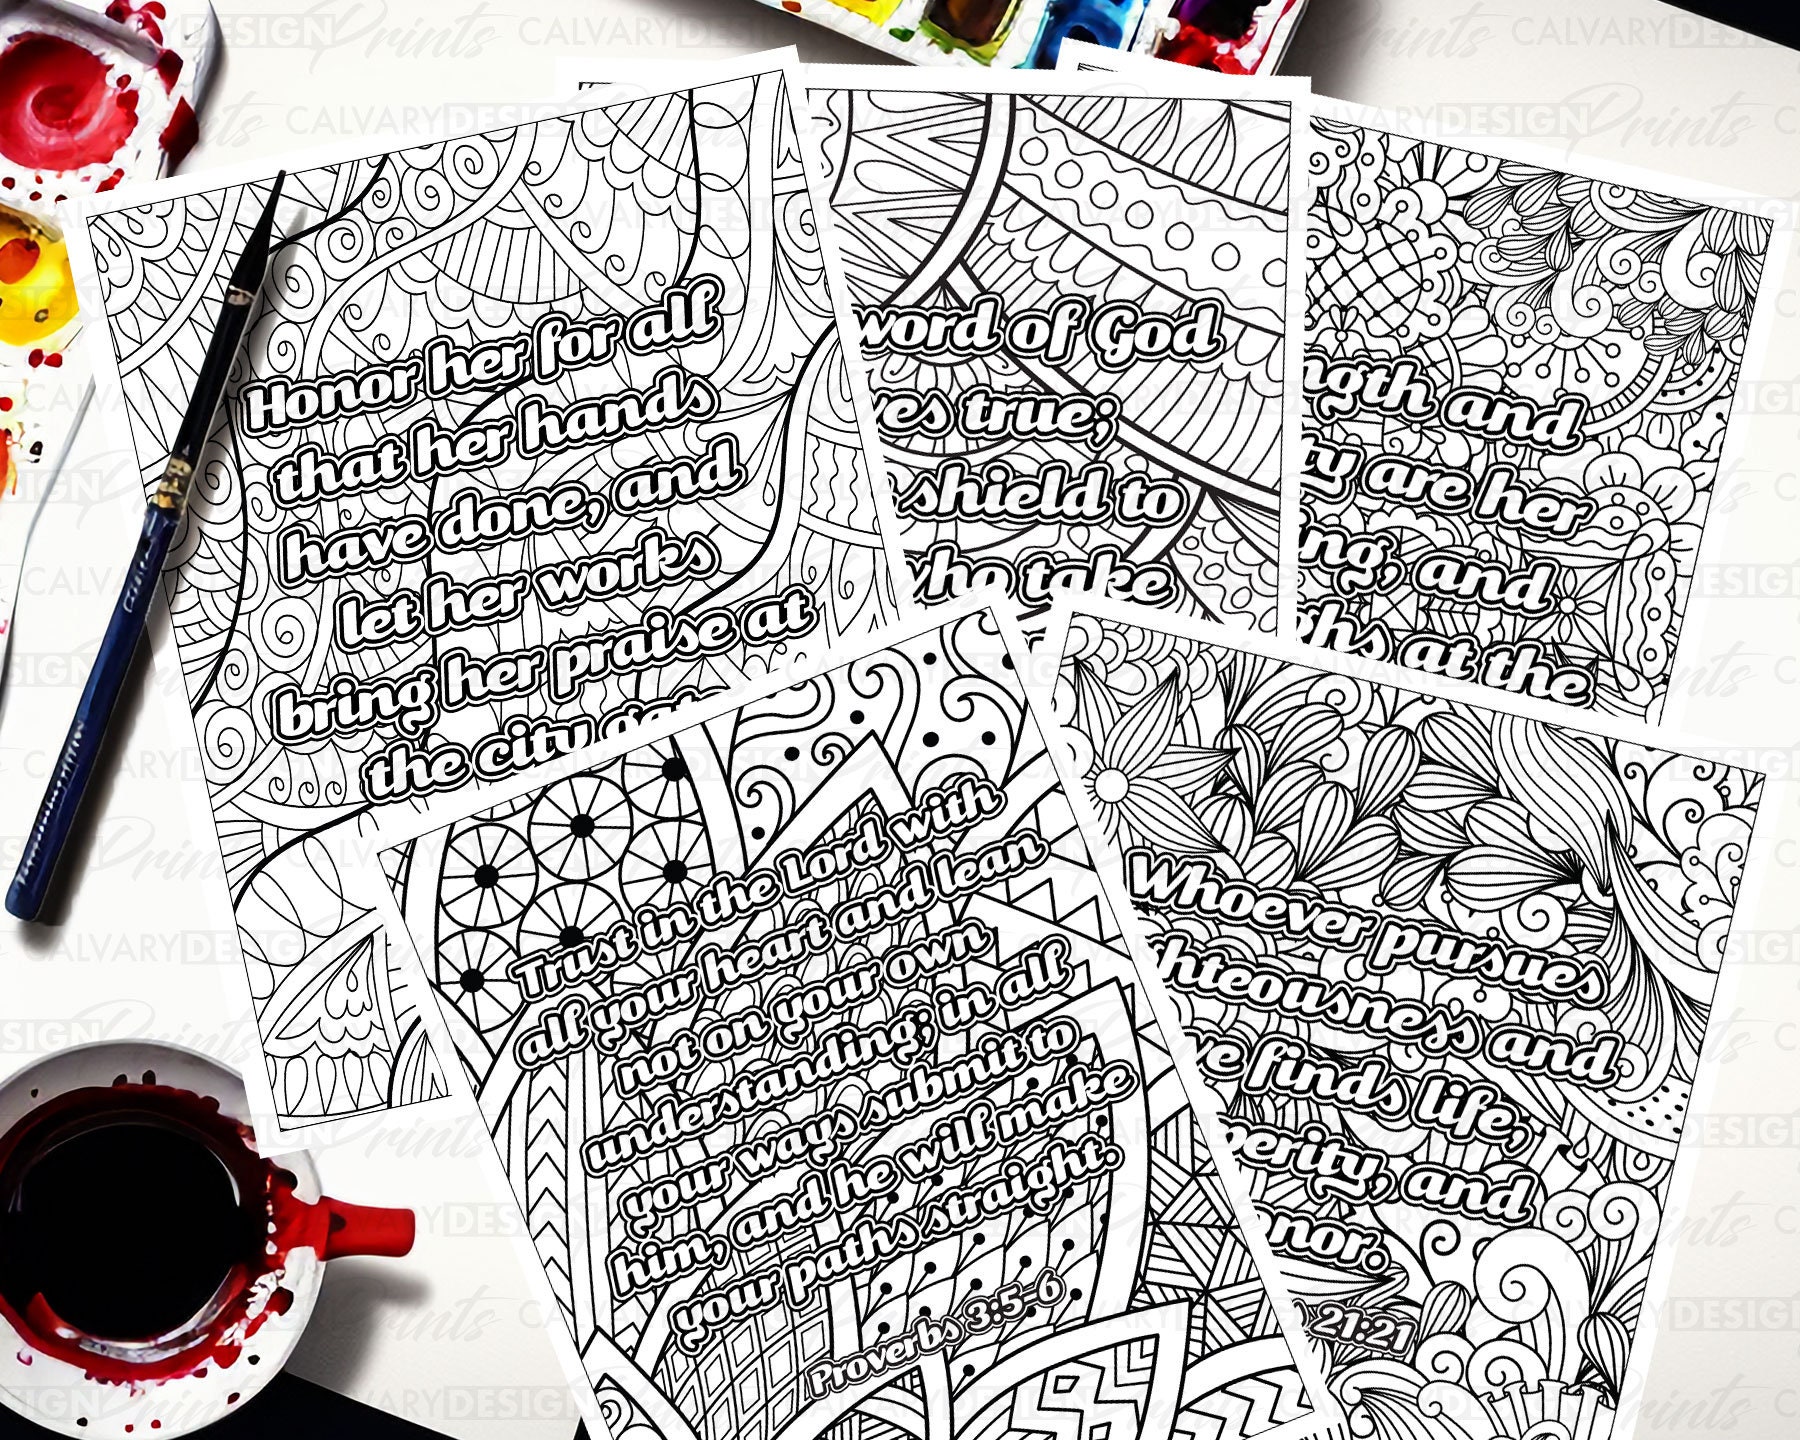 CALVARY DESIGN Prints
Honor her for all
that her hands
have done, and
let her works
bring her praise at
the city
word of God
true;
shield to
who take
and
are her
and
at the
Trust in the Lord with
all your heart and lean
not on your own
understanding; in all
your ways submit to
him, and he will make
your paths straight.
Proverbs 3:5-6
Whoever pursues
and
finds life,
and
21:21